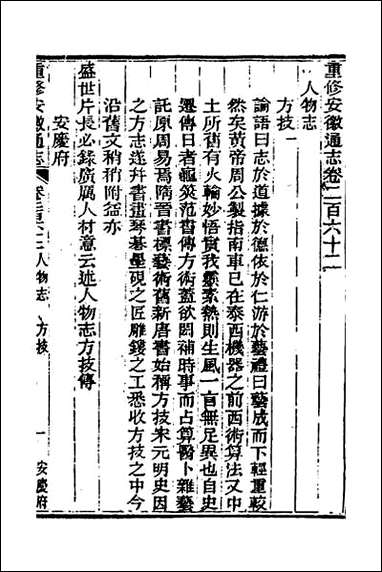 重修安徽通志卷二百六十二
人物志
方技一
論語曰志於道據於德依於仁游於藝禮曰藝成而下輕重較
然矣黃帝周公製指南車已在泰西機器之前西術算法又中
土所舊有火輪妙悟實我靈素熱則生風一言無足異也自史
遷傳日者龜筴范書傳方術蓋欲罔補時事而占算醫卜雜藝
託原周易焉隋晉書標藝術舊新唐書始稱方技宋元明史因
之方志遂并書畫琴棊墨硯之匠雕鏤之工悉收方技之中今
沿舊文稍稍附益亦
盛世片長必錄廣厲人材意云述人物志方技傳
安慶府
重修安徽通志
卷二百六十二人物志
方技
一
安慶府